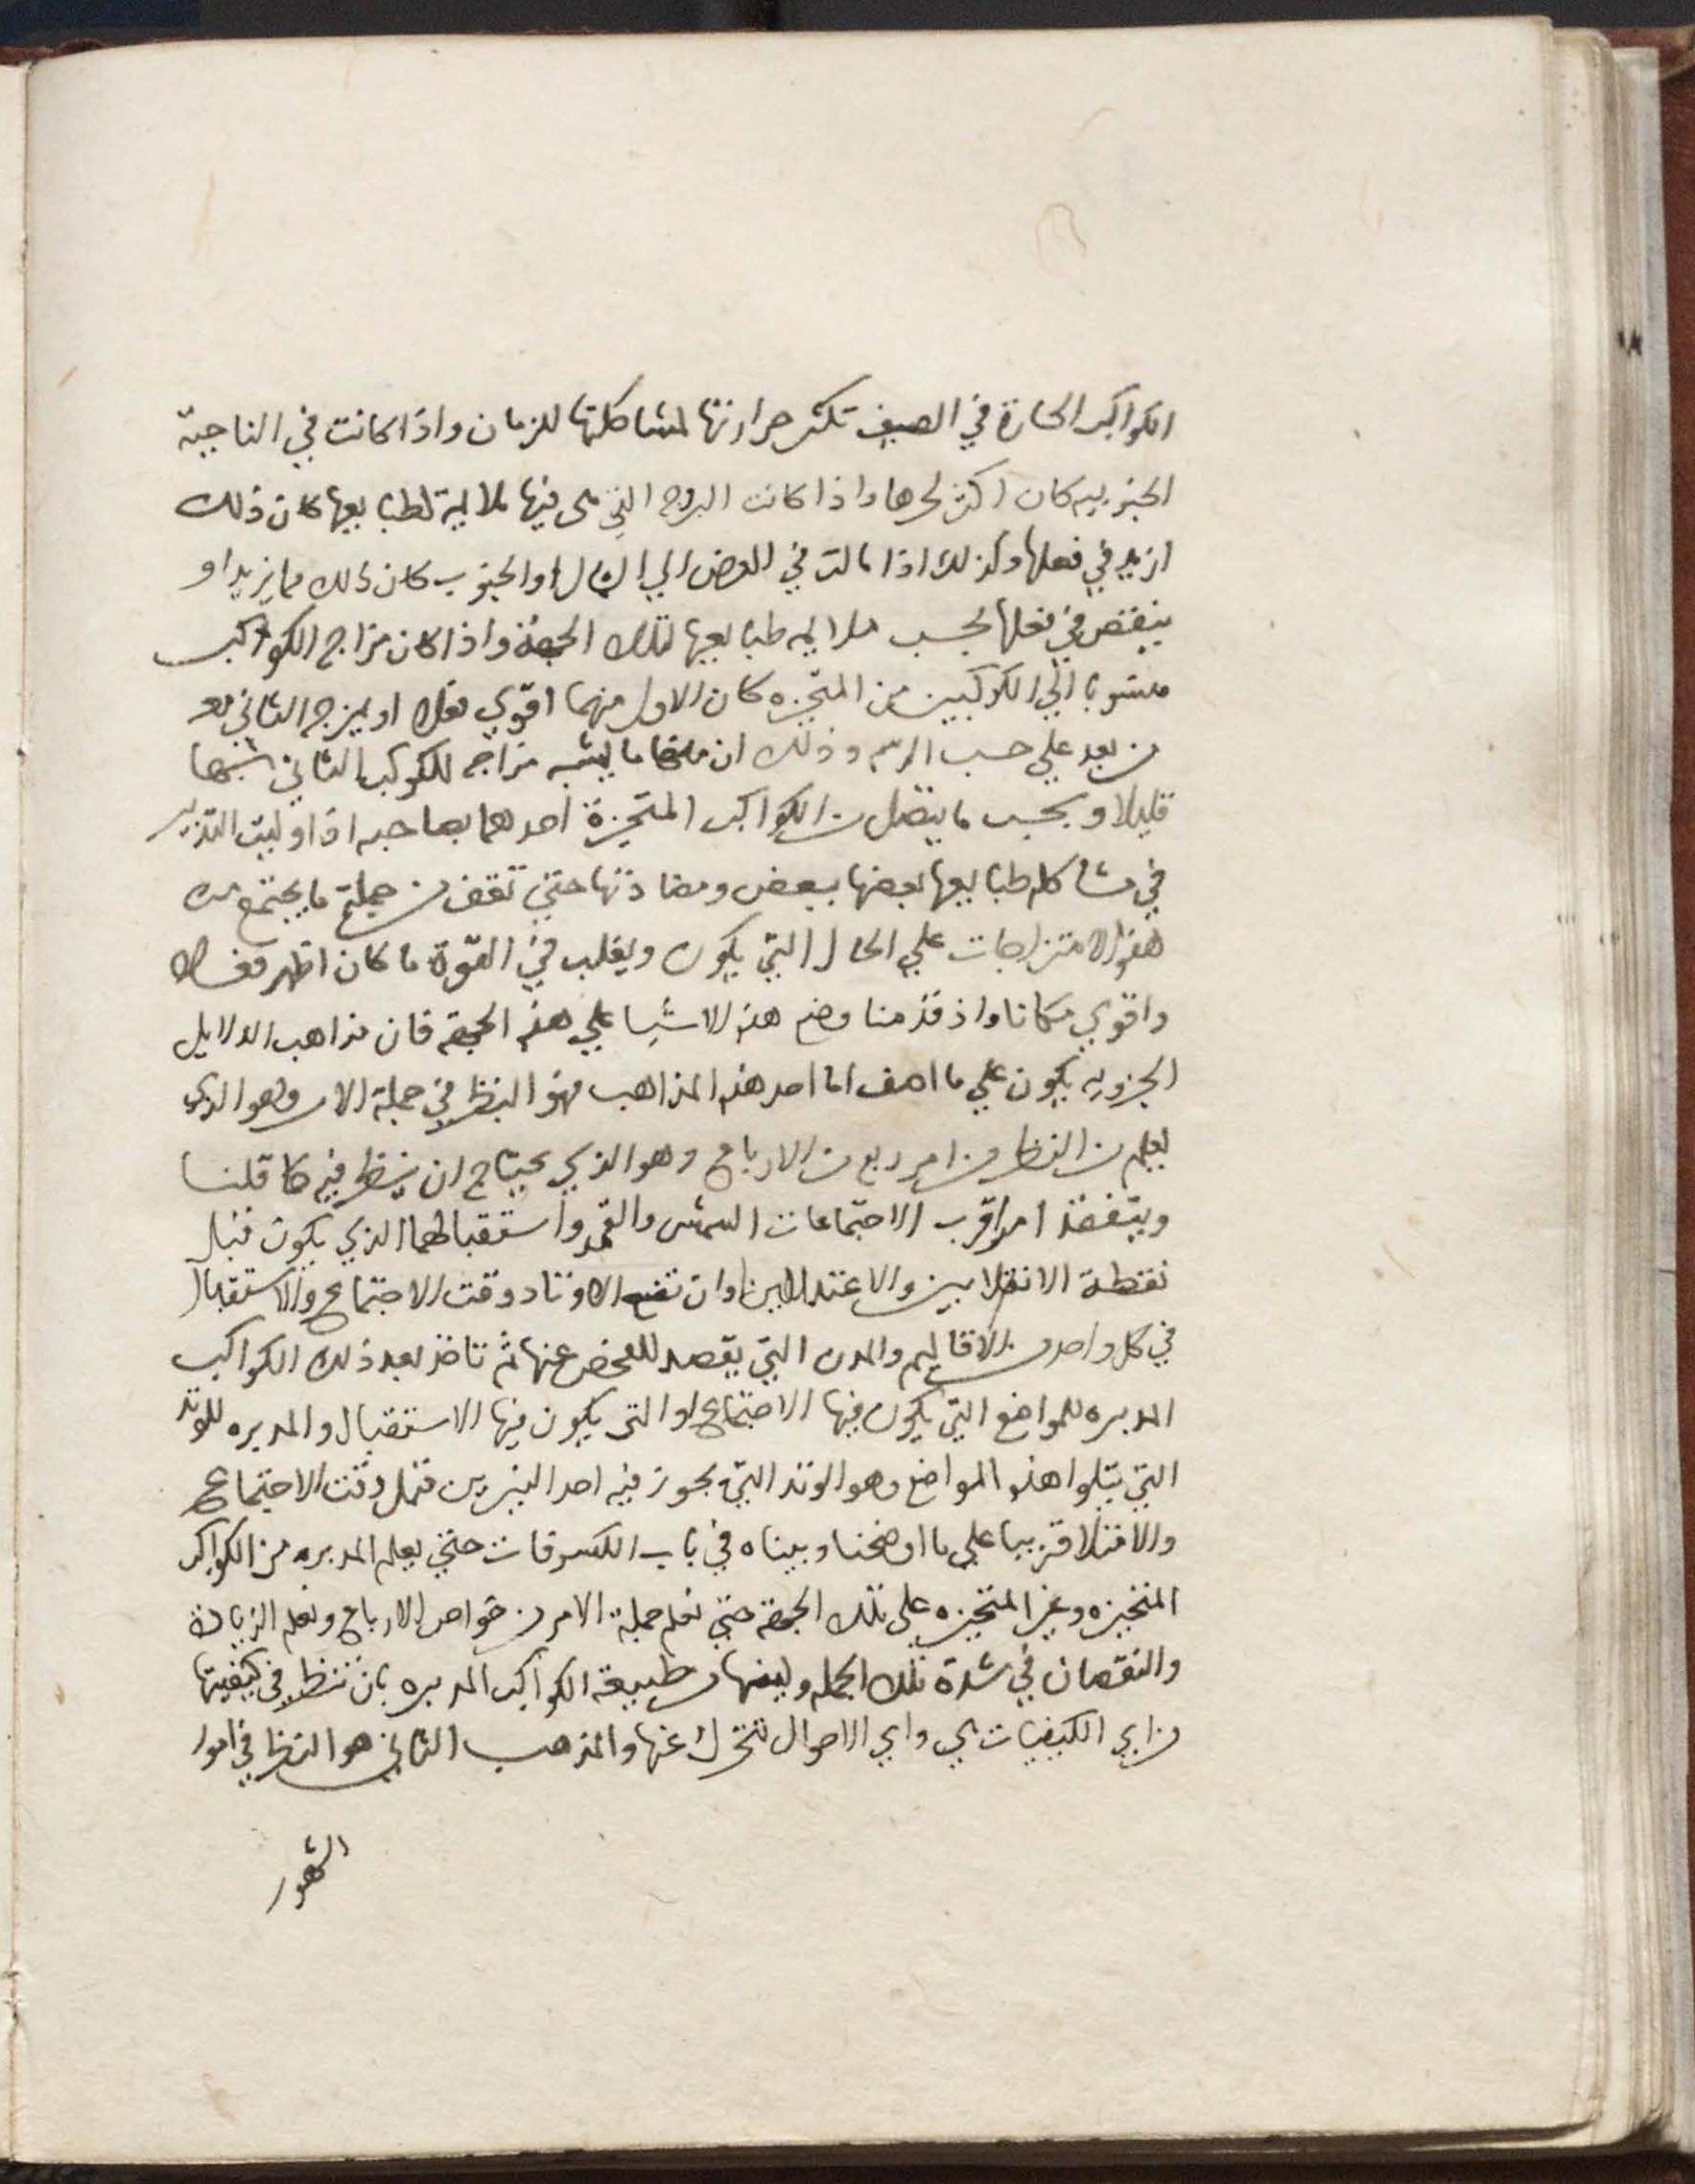 الكواكب الحارة في الصيف تكثر حرارتها لمشاكلتها للزمان واذا كانت في الناحية
الجنوبيه كان اكثر لحرها واذا كانت البروج التي هي فيها ملايمة لطبايعها كان ذلك
ازيد في فعلها وكذلك اذا مالت في العرض الي الشمال او الجنوب كان ذلك مما يزيد او
ينقص في فعلها بحسب ملايمه طبايعها لتلك الجهة واذا كان مزاج الكواكب
منسوبا الي الكوكبين من المتحيزه كان الاول منهما اقوي فعلا او يمزج الثاني معه
من بعد علي حسب الرسم وذلك ان منها ما يشبه مزاجه للكوكب الثاني شبها
قليلا وبحسب ما يتصل من الكواكب المتحيزة احدهما بصاحبه اذا وليت التدبير
في مشاكله طبايعها بعضها ببعض ومضادتها حتي تقف من جملة ما يجتمع من
هذه الامتزاجات علي الحال التي يكون ويغلب في القوة ما كان اظهر فعلا
واقوي مكانا واذ قدمنا وضع هذه الاشيا علي هذه الجهة فان مذاهب الدلايل
الجزويه يكون علي ما اصف اما احد هذه المذاهب فهو النظر في جملة الامر وهو الذي
يعلم من النظر من امر ربع من الارباع وهو الذي يحتاج ان ينظر فيه كما قلنا
ويتفقد امر اقرب الاجتماعات الشمس والقمر واستقبالهما الذي يكون قبل
نقطة الانقلابين والاعتدالين وان تضع الاوتاد وقت الاجتماع والاستقبال
في كل واحد من الاقاليم والمدن التي يقصد للفحص عنها ثم تاخذ بعد ذلك الكواكب
المدبره للمواضع التي يكون فيها الاجتماع او التي يكون فيها الاستقبال والمدبره للوتد
التي يتلوا هذه المواضع وهو الوتد التي يجوز فيه احد النيرين قبل وقت الاجتماع
والامتلا قريبا علي ما اوضحنا وبيناه في باب الكسوفات حتي يعلم المدبره من الكواكب
المتحيزه وغير المتحيزه علي تلك الجهة حتي نعلم جملة الامر من خواص الارباع ونعلم الزيادة
والنقصان في شدة تلك الجمله ولينها من طبيعة الكواكب المدبره بان ننظر في كيفيتها
من اي الكيفيات هي واي الاحوال تتحرك عنها والمذهب الثاني هو النظر في امور
الشهور